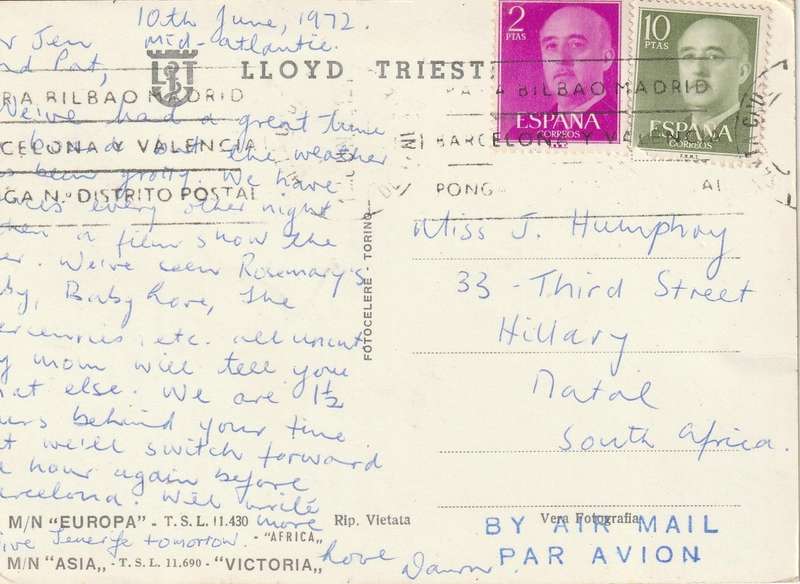 10th June, 1972.
Mid-atlantic.
r Jen
nd Pat,
LLOYD TRIEST
2 PTAS
ESPAÑA
CORREOS
10 PTAS
ESPAÑA
CORREOS
RIA BILBAO MADRID
CELONA Y VALENCIA
GA N.º DISTRITO POSTAL
BILBAO MADRID
BARCELONA Y VALENC
PONG
AI
We've had a great time
but the weather
s been grotty. We have
nces every other night
hen a film show the
er. We've seen Rosemary's
by, Baby Love, The
ercenries, etc. all uncut
y mom will tell you
hat else. We are 1½
urs behind your time
t we'll switch forward
hour again before
arcelona. Will write
more
ive Tenerife tomorrow.
Love Dawn
FOTOCELERE - TORINO
Miss J. Humphry
33 - Third Street
Hillary
Natal
South Africa.
M/N "EUROPA" - T.S.L. 11.430
"AFRICA"
M/N "ASIA" - T.S.L. 11.690 - "VICTORIA"
Rip. Vietata
Vera Fotografia
BY AIR MAIL
PAR AVION